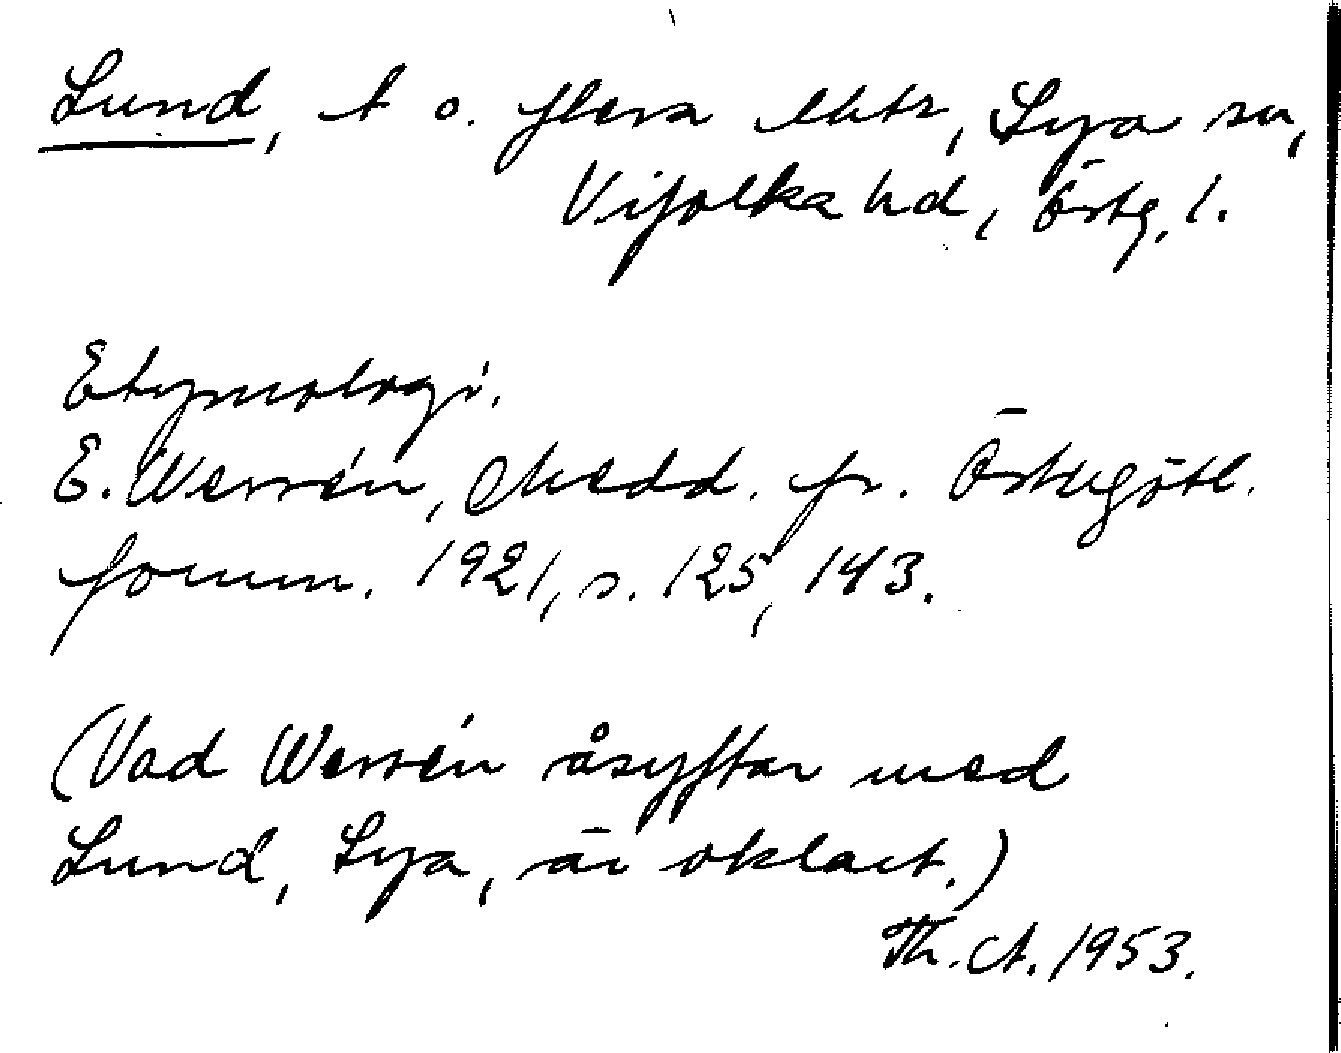 Lund, t o. flera lhtr, Sya sn,
Vifolka hd, Östg. l.
Etymologi.
E. Wessén, Medd. fr. Östergötl.
fornm. 1921, s. 125, 143.
(Vad Wessén åsyftar med
Lund, Sya, är oklart.)
Th. A. 1953.